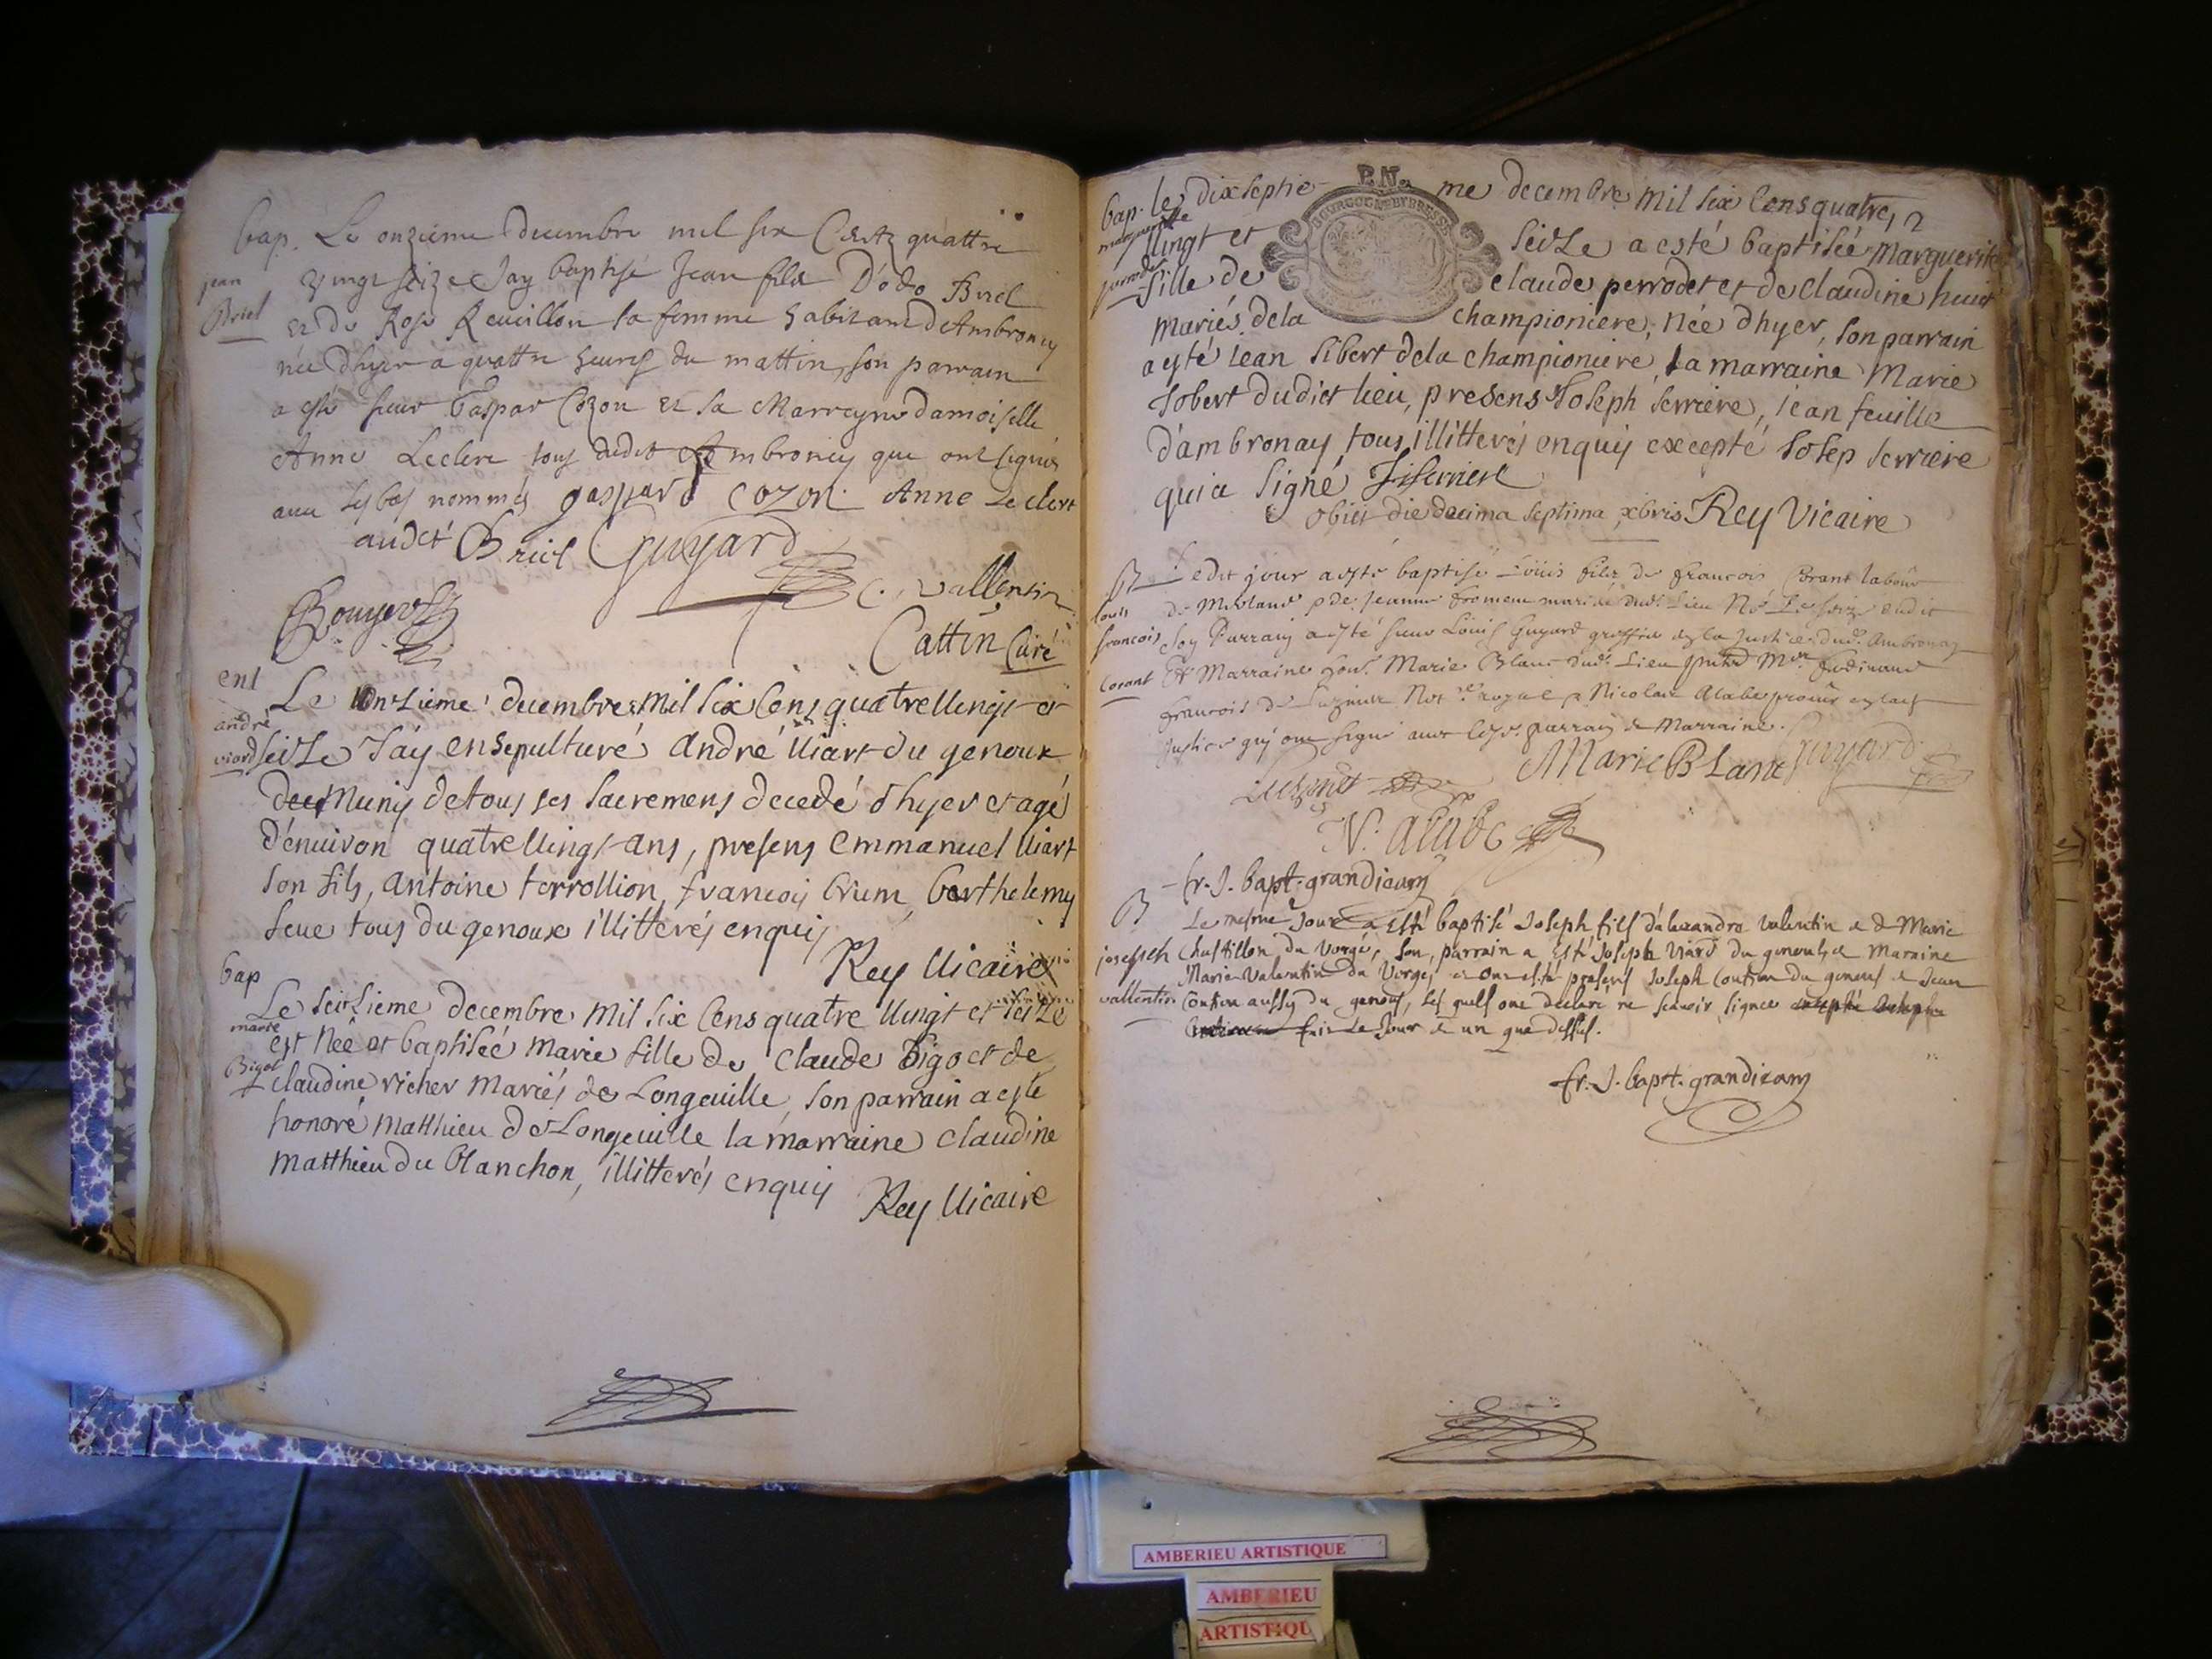 bap. Le onzieme decembre mil six Cents quattre
jean Briel
vingt seize Jay baptisé Jean fils D'odo Briel
et de Rose Reueillon sa femme habitant d'Ambronay
née d'hyer a quattre heures du mattin, son parrain
a esté sieur Gaspar Cozon et sa Marreyne damoiselle
Anne Leclerc tous dudit Ambronay qui ont signés
auec nommés gaspard cozon Anne Leclerc
audet Briel Guyard
C. Vallentin
Bouyer
Cattin Curé
ent
andré viard
Le Onzieme decembre Mil six Cens quatre Uingt et
seize J'ay ensepulturé André Uiart du genoux
Muny de tous ses sacremens decedé d'hyer et agé
d'enuiron quatre Uingt ans, presens Emmanuel Uiart
son fils, Antoine terrollion, francois brum, barthelemy
seue tous du genoux illitterés enquis
Rey Uicaire
bap
marie Bigot
Le seizieme decembre Mil six Cens quatre Uingt et seize
est Née et baptisée Marie fille de Claude Bigot et de
Claudine richer Mariés de Longeuille, son parrain a esté
honoré Matthieu de Longeuille la marraine Claudine
Matthieu du blanchon, illitterés enquis
Rey Uicaire
P.N.
BOURGOGNE ET BRESSE
bap. le dixseptieme decembre Mil six Cens quatre
marguerite perrodet
Uingt et seize a esté baptisée Marguerite
fille de claude perrodet et de claudine huit
mariés de la championiere, née d'hyer, son parrain
a esté iean sibert de la championiere, la marraine Marie
Jobert dudict lieu, presens Joseph serriere, iean feuille
d'ambronay tous illitterés enquis excepté Josep serriere
qui a signé J serriere
obiit die decima septima xbris Rey Vicaire
B
louis francois Corant
Ledit jour a esté baptisé Louis fils de francois Corant labour
de Merland & de Jeanne froment mariés dud. lieu Né Le seize dudit
Son Parrain a esté sieur Louis Guyard greffier en la Justice dud. Ambronay
Et Marraine Marie Blanc dud. Lieu
francois de Not. royal & Nicolas Alabe
Justice qui ont signé auec parrain & Marraine.
Marie Blanc Guyard
N. alabe
fr. J. bapt. grandicamp
B
josepsch vallentin
Le mesme Jour a esté baptisé Joseph fils d'alexandre valentin & de Marie
Chastillon du Vorges, son parrain a esté Joseph Viard du genoud & Maraine
Marie Valentin du Vorges et ont esté presens Joseph Couturi du genoud & Jean
aussy du genoud, lesquels ont declaré ne scauoir signer
fait Le Jour & an que dessus.
fr. J. baptt. grandicamp
AMBERIEU ARTISTIQUE
AMBERIEU
ARTISTIQU